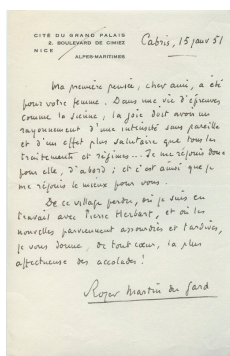 CITÉ DU GRAND PALAIS
2, BOULEVARD DE CIMIEZ
NICE
ALPES-MARITIMES
Cabris, 15 janv 51
Ma première pensée, cher ami, a été
pour votre femme. Dans une vie d'épreuves
comme la sienne, la joie doit avoir un
rayonnement d'une intensité sans pareille
et d'un effet plus salutaire que tous les
traitements et régimes... Je me réjouis donc
pour elle, d'abord ; et c'est ainsi que je
me réjouis le mieux pour vous.
De ce village perdu, où je suis en
travail avec Pierre Herbart, et où les
nouvelles parviennent assourdies et tardives,
je vous donne, de tout cœur, la plus
affectueuse des accolades !
Roger Martin du Gard